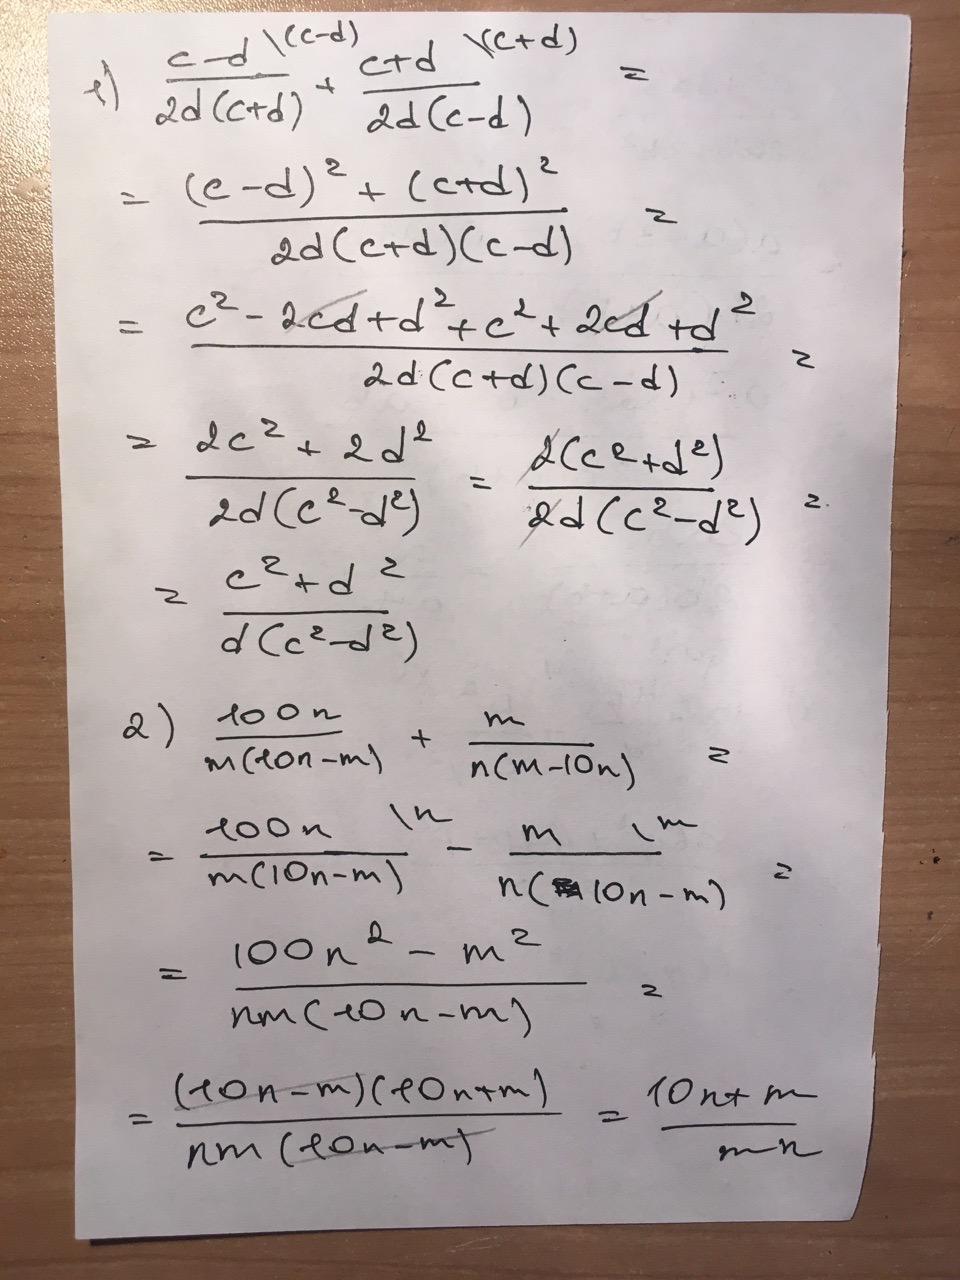 1) \frac{c-d}{2d(c+d)} \(c-d) + \frac{c+d}{2d(c-d)} \(c+d) =
= \frac{(c-d)^2 + (c+d)^2}{2d(c+d)(c-d)} =
= \frac{c^2 - 2cd + d^2 + c^2 + 2cd + d^2}{2d(c+d)(c-d)} =
= \frac{2c^2 + 2d^2}{2d(c^2-d^2)} = \frac{2(c^2+d^2)}{2d(c^2-d^2)} =
= \frac{c^2+d^2}{d(c^2-d^2)}
2) \frac{100n}{m(10n-m)} + \frac{m}{n(m-10n)} =
= \frac{100n}{m(10n-m)} \n - \frac{m}{n(10n-m)} \m =
= \frac{100n^2 - m^2}{nm(10n-m)} =
= \frac{(10n-m)(10n+m)}{nm(10n-m)} = \frac{10n+m}{mn}